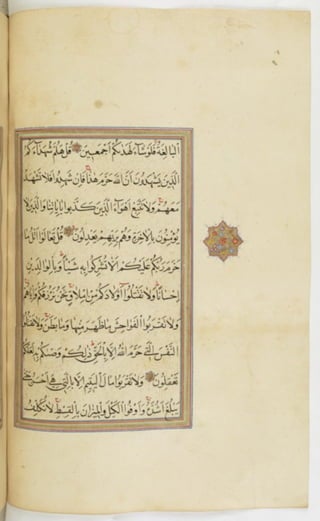 الْبَالِغَةُ فَلَوْ شَاءَ لَهَدٰىكُمْ اَجْمَعِينَ قُلْ هَلُمَّ شُهَدَاءَكُمُ
الَّذِينَ يَشْهَدُونَ اَنَّ اللّٰهَ حَرَّمَ هٰذَا فَاِنْ شَهِدُوا فَلَا تَشْهَدْ
مَعَهُمْ وَلَا تَتَّبِعْ اَهْوَاءَ الَّذِينَ كَذَّبُوا بِاٰيَاتِنَا وَالَّذِينَ لَا
يُؤْمِنُونَ بِالْاٰخِرَةِ وَهُمْ بِرَبِّهِمْ يَعْدِلُونَ قُلْ تَعَالَوْا اَتْلُ مَا
حَرَّمَ رَبُّكُمْ عَلَيْكُمْ اَلَّا تُشْرِكُوا بِهِ شَيْئًا وَبِالْوَالِدَيْنِ
اِحْسَانًا وَلَا تَقْتُلُوا اَوْلَادَكُمْ مِنْ اِمْلَاقٍ نَحْنُ نَرْزُقُكُمْ وَاِيَّاهُمْ
وَلَا تَقْرَبُوا الْفَوَاحِشَ مَا ظَهَرَ مِنْهَا وَمَا بَطَنَ وَلَا تَقْتُلُوا
النَّفْسَ الَّتِي حَرَّمَ اللّٰهُ اِلَّا بِالْحَقِّ ذٰلِكُمْ وَصّٰىكُمْ بِهِ لَعَلَّكُمْ
تَعْقِلُونَ وَلَا تَقْرَبُوا مَالَ الْيَتِيمِ اِلَّا بِالَّتِي هِيَ اَحْسَنُ حَتّٰى
يَبْلُغَ اَشُدَّهُ وَاَوْفُوا الْكَيْلَ وَالْمِيزَانَ بِالْقِسْطِ لَا نُكَلِّفُ